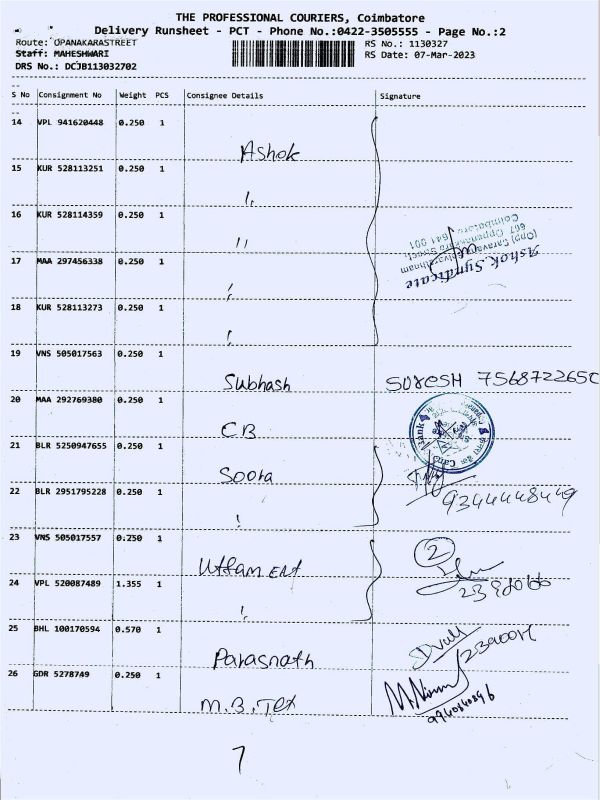 THE PROFESSIONAL COURIERS, Coimbatore
Delivery Runsheet - PCT - Phone No.:0422-3505555 - Page No.:2
Route: OPANAKARASTREET RS No.: 1130327
Staff: MAHESHWARI RS Date: 07-Mar-2023
DRS No.: DCJB113032702
S No Consignment No Weight PCS Consignee Details Signature
14 VPL 941620448 0.250 1
Ashok
15 KUR 528113251 0.250 1
"
16 KUR 528114359 0.250 1
"
Ashok Syndicate
Coimbatore 641 001
17 MAA 297456338 0.250 1
"
18 KUR 528113273 0.250 1
"
19 VNS 505017563 0.250 1
Subhash SURESH 7568722650
20 MAA 292769380 0.250 1
CB
21 BLR 5250947655 0.250 1
Soora
22 BLR 2951795228 0.250 1
" 9344448449
23 VNS 505017557 0.250 1
Uttam Ent 2
24 VPL 520087489 1.355 1
"
25 BHL 100170594 0.570 1
Parasnath
26 GDR 5278749 0.250 1
M.B. Tex
7